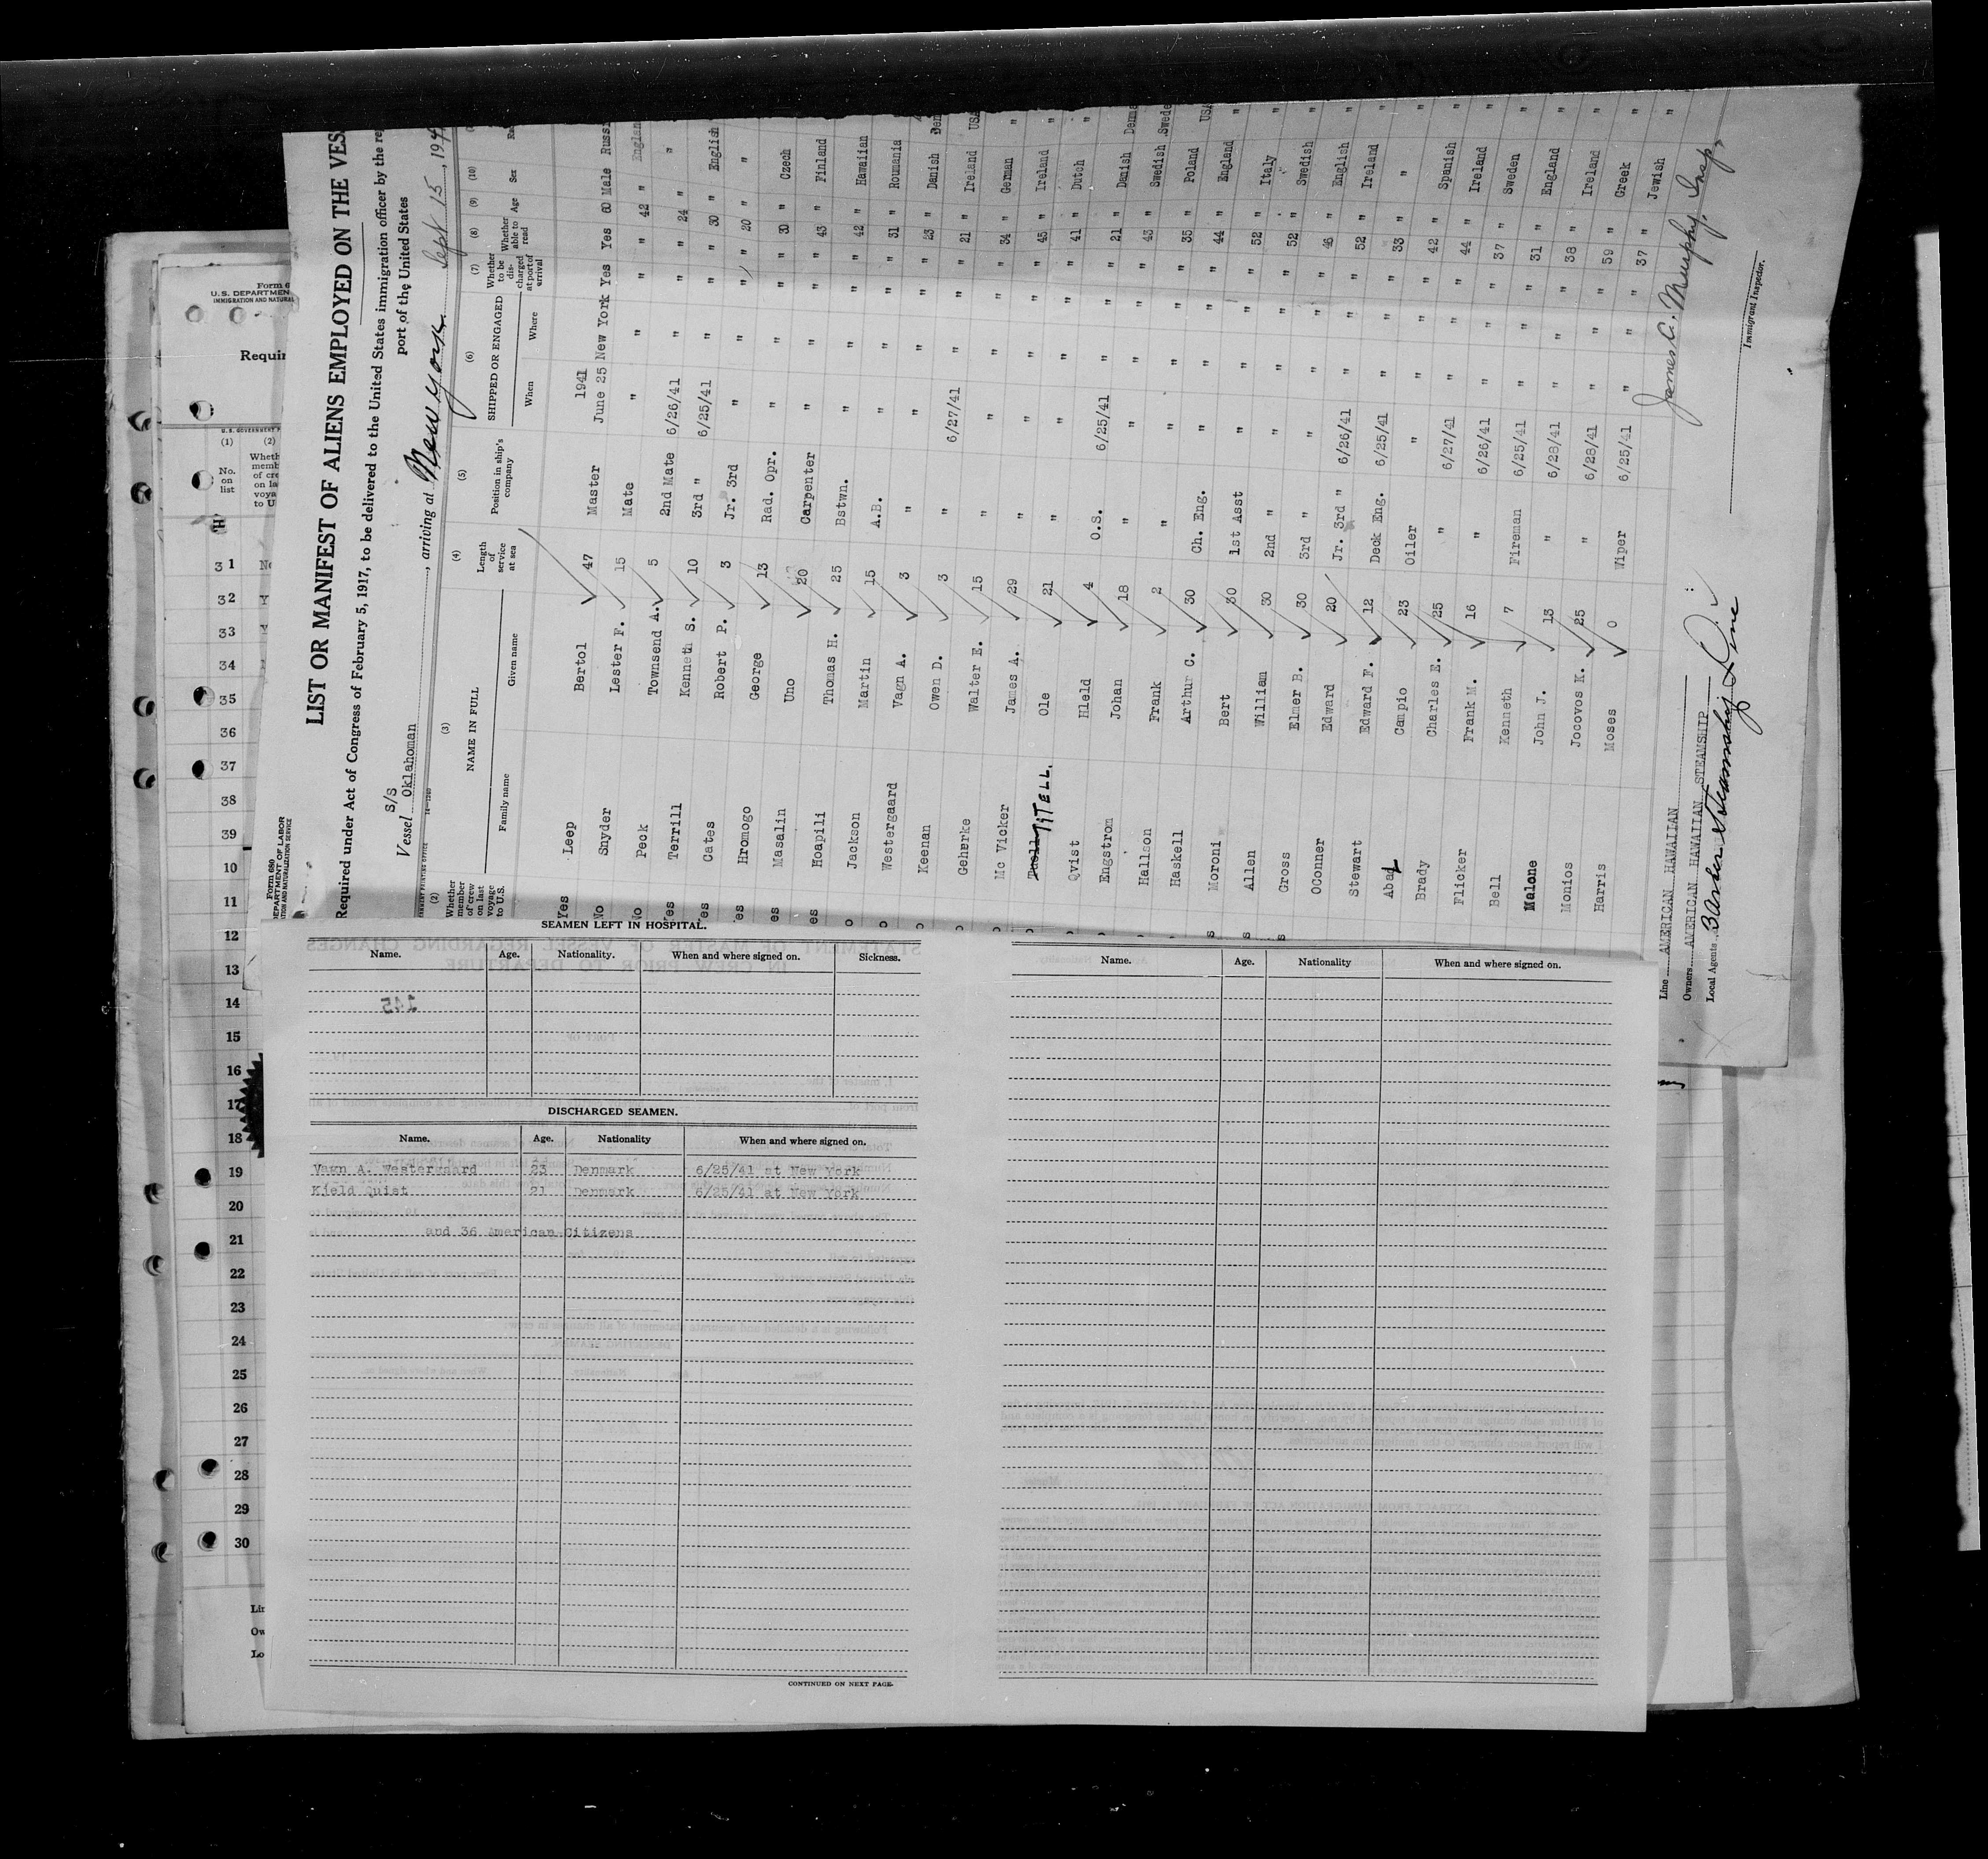 LIST OR MANIFEST OF ALIENS EMPLOYED ON THE VES
Required under Act of Congress of February 5, 1917, to be delivered to the United States immigration officer by the re
port of the United States
S/S
Vessel Oklahoman, arriving at New York Sept 15, 194
(2) (3) (4) (5) (6) (7) (8) (9) (10)
Whether member of crew on last voyage to U.S. NAME IN FULL Family name Given name Length of service at sea Position in ship's company SHIPPED OR ENGAGED When Where Whether to be discharged at port of arrival Whether able to read Age Sex
1941
Yes Leep Bertol 47 Master June 25 New York Yes Yes 60 Male Russi
No Snyder Lester F. 15 Mate " " " " 42 " England
No Peck Townsend A. 5 2nd Mate 6/26/41 " " " 24 " "
Yes Terrill Kenneth S. 10 3rd " 6/25/41 " " " 30 " English
es Cates Robert P. 3 Jr. 3rd " " " " 20 " "
es Hromogo George 13 Rad. Opr. " " " " 30 " Czech
es Masalin Uno 20 Carpenter " " " " 43 " Finland
es Hoapili Thomas H. 25 Bstwn. " " " " 42 " Hawaiian
o Jackson Martin 15 A.B. " " " " 31 " Roumania
o Westergaard Vagn A. 3 " " " " " 23 " Danish Den
o Keenan Owen D. 3 " 6/27/41 " " " 21 " Ireland USA
Gehrke Walter E. 15 " " " " " 34 " German "
Mc Vicker James A. 29 " " " " " 45 " Ireland "
TITELL Ole 21 " " " " " 41 " Dutch "
Qvist Hield 4 O.S. 6/25/41 " " " 21 " Danish Denma
Engstrom Johan 18 " " " " " 43 " Swedish Swede
Hallson Frank 2 " " " " " 35 " Poland USA
Haskell Arthur C. 30 Ch. Eng. " " " " 44 " England "
s Moroni Bert 30 1st Asst " " " " 52 " Italy "
s Allen William 30 2nd " " " " " 52 " Swedish "
s Gross Elmer B. 30 3rd " " " " " 46 " English "
OConner Edward 20 Jr. 3rd " 6/26/41 " " " 52 " Ireland "
Stewart Edward F. 12 Deck Eng. 6/25/41 " " " 33 " " "
Abad Campio 23 Oiler " " " " 42 " Spanish "
Brady Charles E. 25 " 6/27/41 " " " 44 " Ireland "
Flicker Frank M. 16 " 6/26/41 " " " 37 " Sweden "
Bell Kenneth 7 Fireman 6/25/41 " " " 31 " England "
Malone John J. 13 " 6/28/41 " " " 38 " Ireland "
Monios Jocovos K. 25 " 6/28/41 " " " 59 " Greek "
Harris Moses 0 Wiper 6/25/41 " " " 37 " Jewish "
James A. Murphy, Insp,
Immigrant Inspector.
Line AMERICAN HAWAIIAN
Owners AMERICAN HAWAIIAN STEAMSHIP
Local Agents Barber Steamship Line
Form 6
U.S. DEPARTMEN
IMMIGRATION AND NATURAL
Requir
(1) (2)
No. on list
Wheth
memb
of cre
on la
voya
to U
31
32
33
34
35
36
37
38
39
10
11
12
13
14
15
16
17
18
19
20
21
22
23
24
25
26
27
28
29
30
Form 680
DEPARTMENT OF LABOR
TION AND NATURALIZATION SERVICE
Lin
Ow
Lo
SEAMEN LEFT IN HOSPITAL.
Name. Age. Nationality. When and where signed on. Sickness.
145
DISCHARGED SEAMEN.
Name. Age. Nationality When and where signed on.
Vagn A. Westergaard 23 Denmark 6/25/41 at New York
Kield Quist 21 Denmark 6/25/41 at New York
and 36 American Citizens
CONTINUED ON NEXT PAGE.
Name. Age. Nationality When and where signed on.